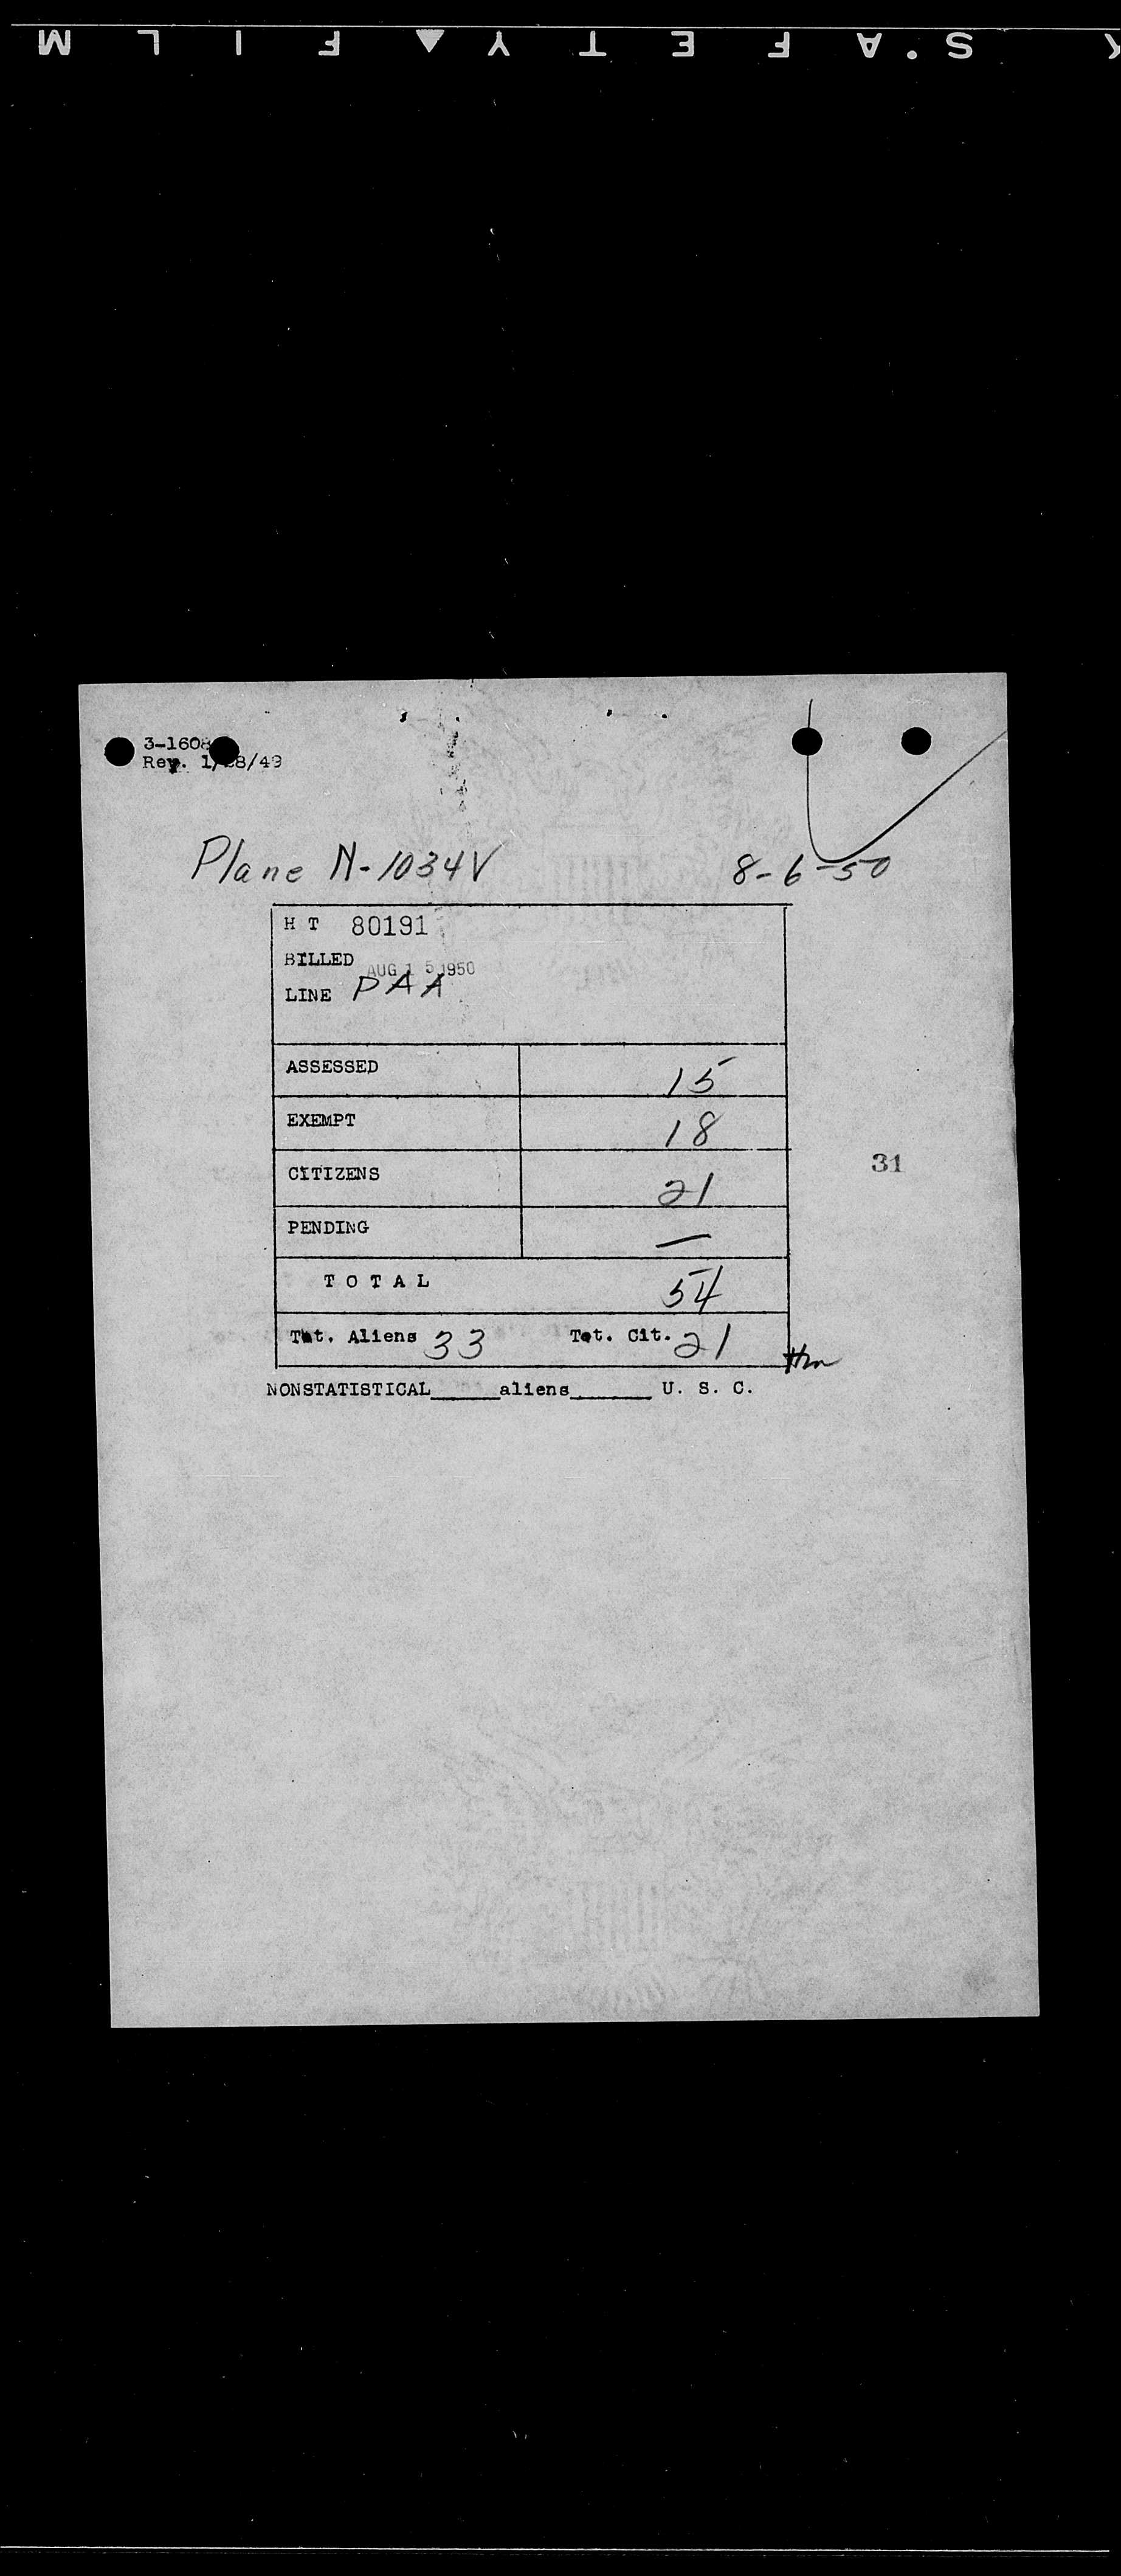 SAFETY FILM
3-1608
Rev. 1/28/49
Plane N-1034V 8-6-50
H T 80191
BILLED AUG 15 1950
LINE PAA
ASSESSED 15
EXEMPT 18
31
CITIZENS 21
PENDING —
TOTAL 54
Tot. Aliens 33 Tot. Cit. 21
NONSTATISTICAL_____aliens______ U. S. C.